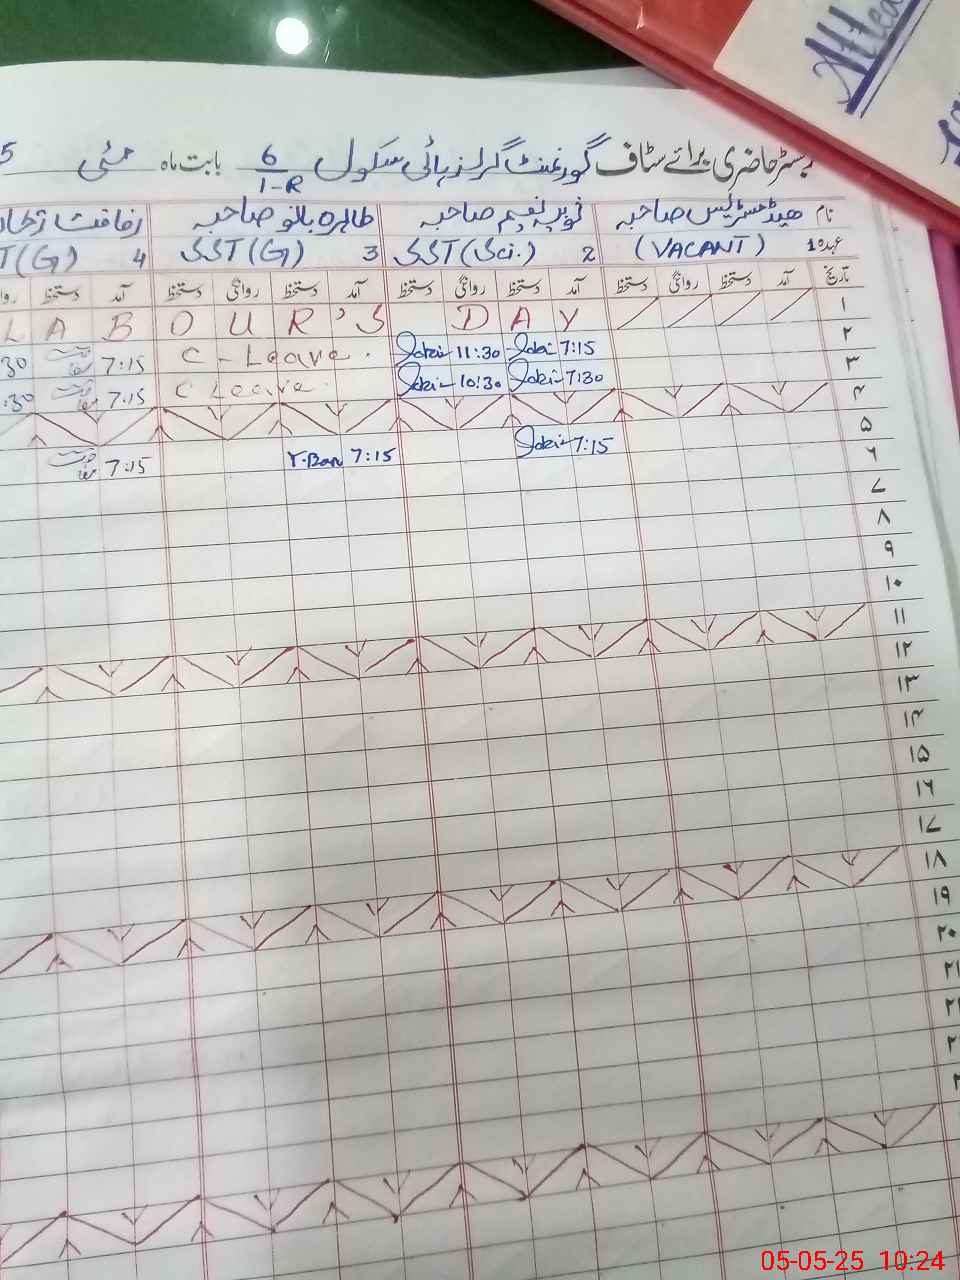 Attea
رجسٹر حاضری برائے سٹاف گورنمنٹ گرلز ہائی سکول 6/1-R بابت ماہ مئی 5
نام ھیڈ مسٹریس صاحبہ ثوبیہ نعیم صاحبہ طاہرہ بانو صاحبہ رفاقت
عہدہ 1 (VACANT) 2 SST (Sci.) 3 SST (G) 4 T (G)
تاریخ آمد دستخط روانگی دستخط آمد دستخط روانگی دستخط آمد دستخط روانگی دستخط آمد دستخط روا
۱ L A B O U R'S D A Y
۲ 7:15 11:30 C-Leave. 7:15 :30
۳ 7:30 10:30 C Leave. 7:15 :30
۴
۵ 7:15 T.Ban 7:15 7:15
۶
۷
۸
۹
۱۰
۱۱
۱۲
۱۳
۱۴
۱۵
۱۶
۱۷
۱۸
۱۹
۲۰
۲۱
05-05-25 10:24